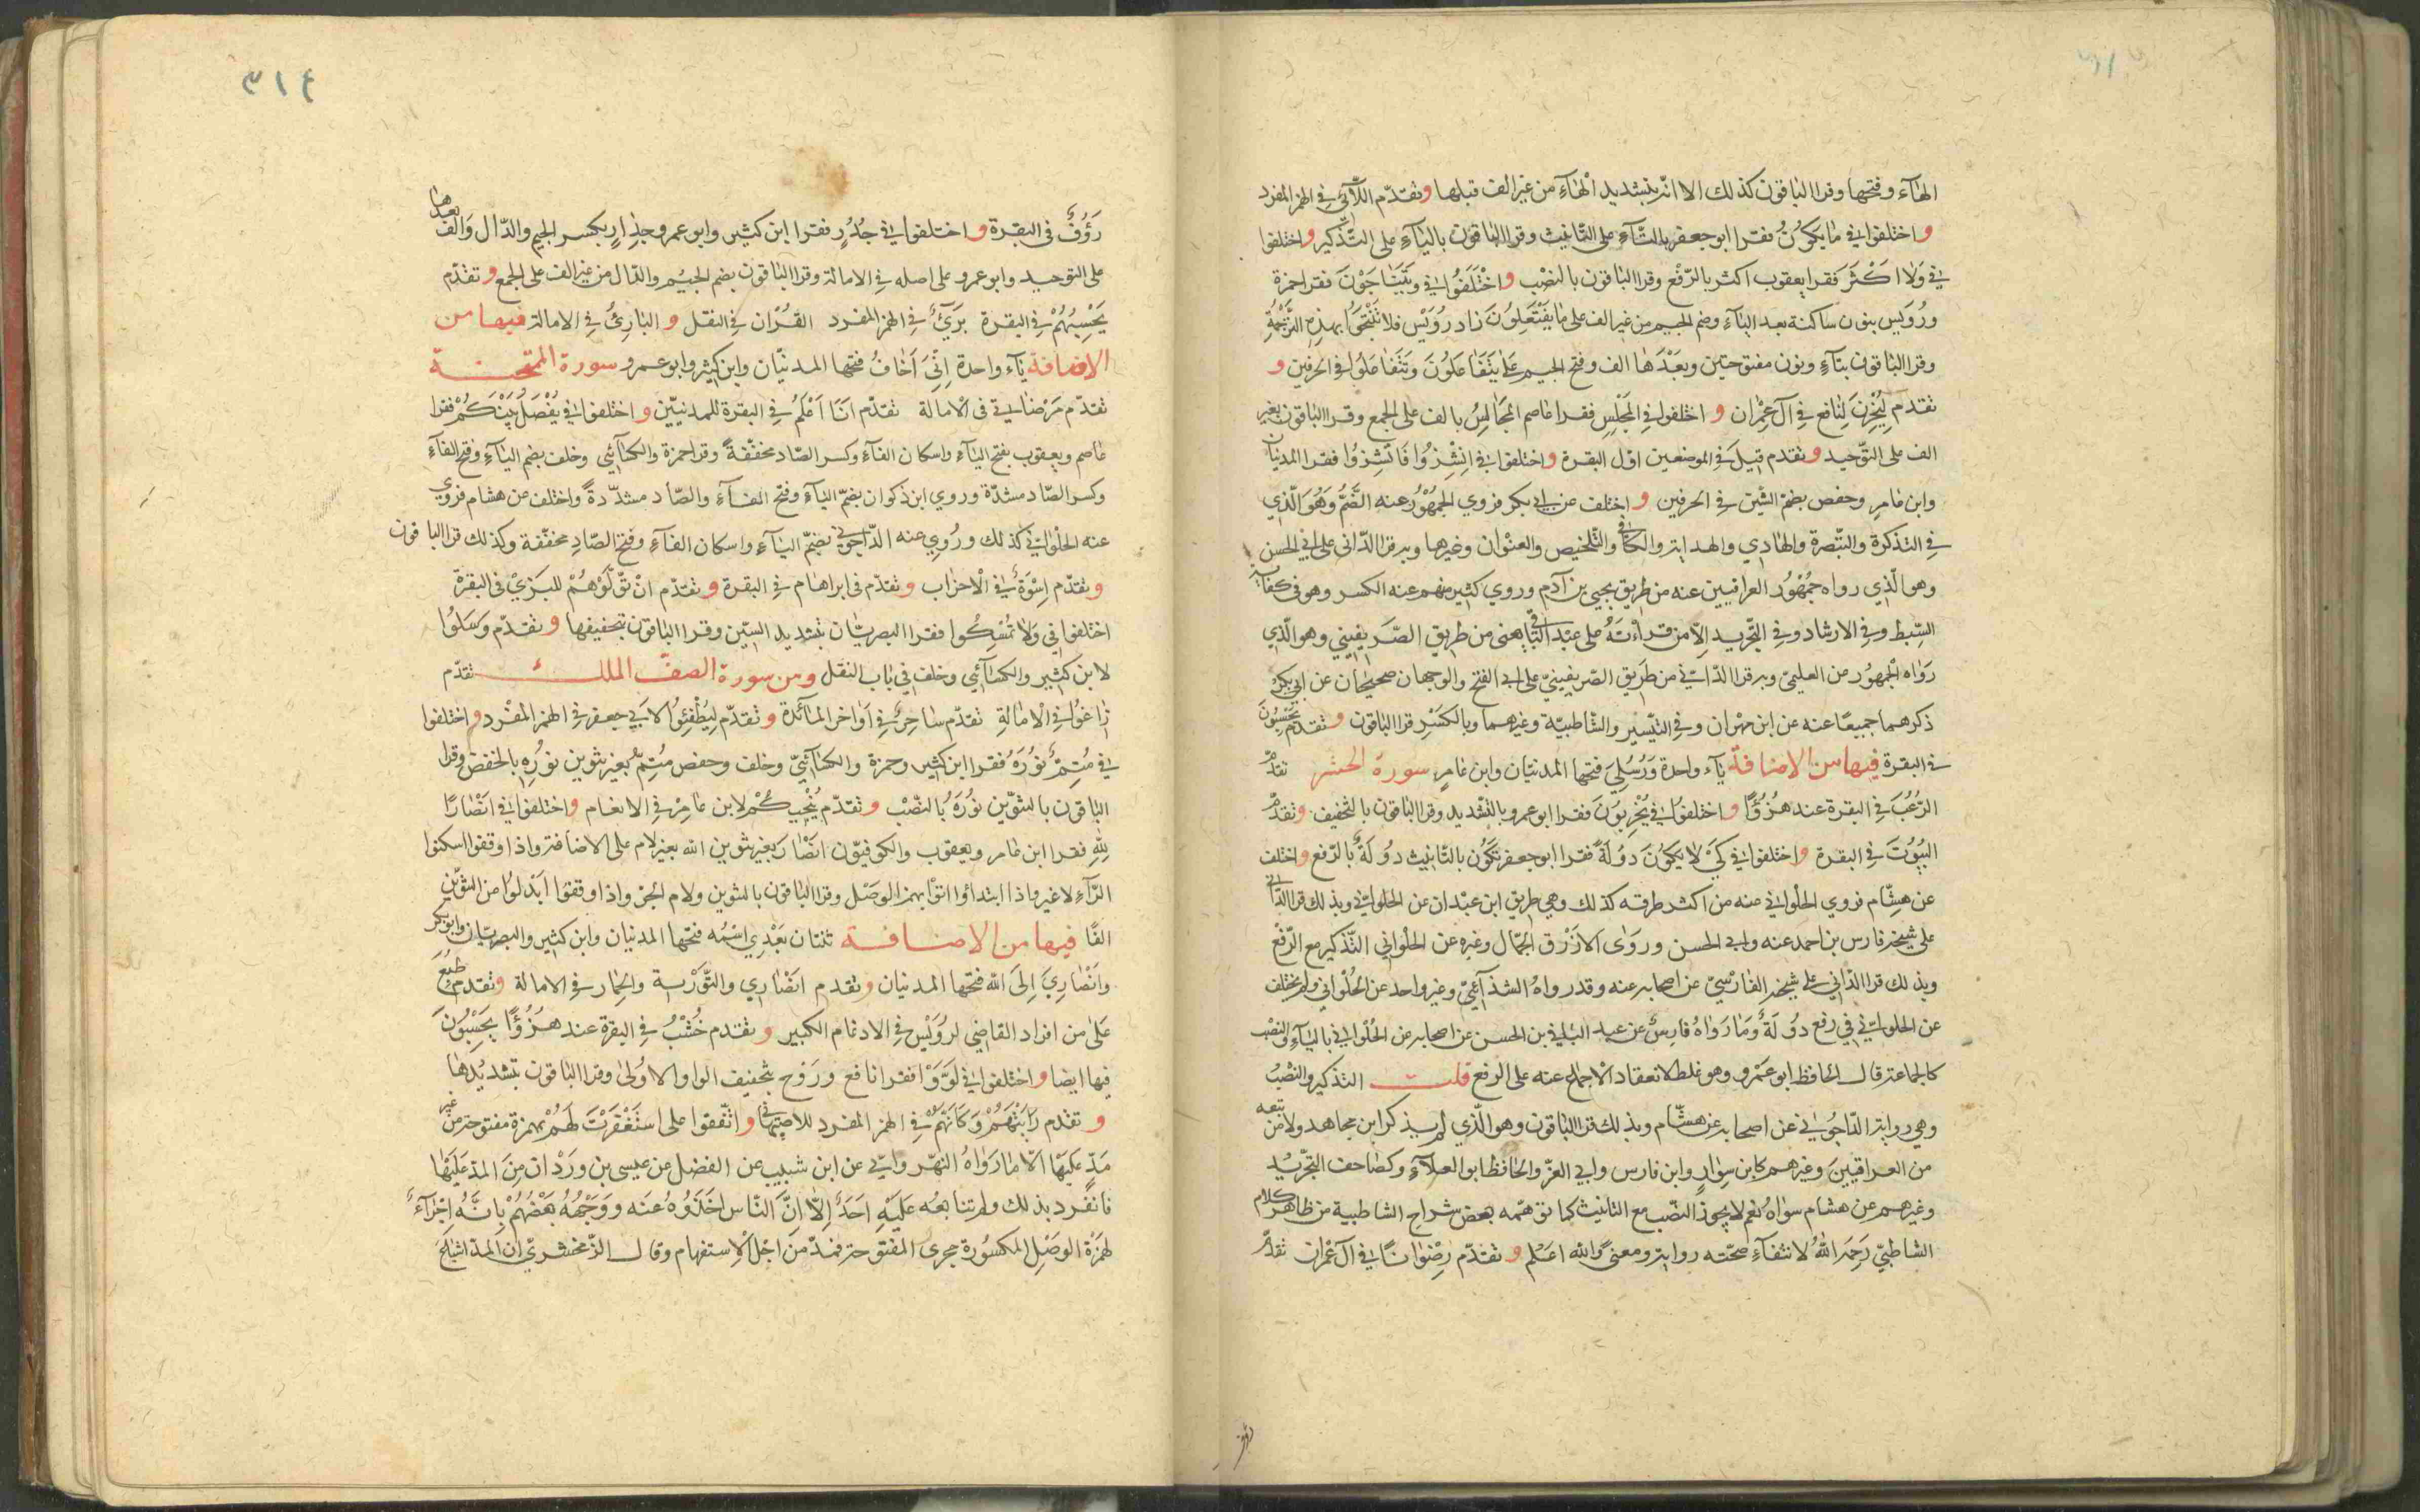 الهاء وفتحها وقرا الباقون كذلك الا انه بتشديد الهاء من غير الف قبلها وتقدم اللائي في الهمز المفرد
واختلفوا في ما يكون فقرا ابو جعفر بالتاء على التانيث وقرا الباقون بالياء على التذكير واختلفوا
في ولا اكثر فقرا يعقوب اكثر بالرفع وقرا الباقون بالنصب واختلفوا في ويتناجون فقرا حمزة
ورويس بنون ساكنة بعد الياء وضم الجيم من غير الف على ما يفتعلون زاد رويس فلا تنتجوا بهذه الترجمة
وقرا الباقون بتاء ونون مفتوحتين وبعدها الف وفتح الجيم على يتفاعلون وتتفاعلوا في الحرفين و
تقدم ليحزن لنافع في آل عمران واختلفوا في المجلس فقرا عاصم المجالس بالف على الجمع وقرا الباقون بغير
الف على التوحيد وتقدم قيل في الموضعين اول البقرة واختلفوا في انشزوا فانشزوا فقرا المدنيان
وابن عامر وحفص بضم الشين في الحرفين واختلف عن ابي بكر فروي الجمهور عنه الضم وهو الذي
في التذكرة والتبصرة والهادي والهداية والكافي والتلخيص والعنوان وغيرها وبه قرا الداني على ابي الحسن
وهو الذي رواه جمهور العراقيين عنه من طريق يحيى بن آدم وروي كثير منهم عنه الكسر وهو في كفاية
السبط وفي الارشاد وفي التجريد الا من قراءته على عبد الباقي يعني من طريق الصريفيني وهو الذي
رواه الجمهور عن العليمي وبه قرا الداني من طريق الصريفيني على ابي الفتح والوجهان صحيحان عن ابي بكر
ذكرهما جميعا عنه عن ابن مهران وفي التيسير والشاطبية وغيرهما وبالكسر قرا الباقون وتقدم تحسبون
في البقرة فيها من الاضافة ياء واحدة ورسلي فتحها المدنيان وابن عامر سورة الحشر تقدم
الرعب في البقرة عند هزؤا واختلفوا في يخربون فقرا ابو عمرو بالتشديد وقرا الباقون بالتخفيف وتقدم
البيوت في البقرة واختلفوا في كي لا يكون دولة فقرا ابو جعفر تكون بالتانيث دولة بالرفع واختلف
عن هشام فروي الحلواني عنه من اكثر طرقه كذلك وهي طريق ابن عبدان عن الحلواني وبذلك قرا الداني
على شيخه فارس بن احمد عنه وابي الحسن وروى الازرق الجمال وغيره عن الحلواني التذكير مع الرفع
وبذلك قرا الداني على شيخه الفارسي عن اصحابه عنه وقد رواه الشذائي وغير واحد عن الحلواني ولم يختلف
عن الحلواني في رفع دولة وما رواه فارس عن عبد الباقي بن الحسن عن اصحابه عن الحلواني بالياء والنصب
كالجماعة قال الحافظ ابو عمرو وهو غلط لانعقاد الاجماع عنه على الرفع قلت التذكير والنصب
وهي رواية الداجوني عن اصحابه عن هشام وبذلك قرا الباقون وهو الذي لم يذكر ابن مجاهد ولا من تبعه
من العراقيين وغيرهم كابن سوار وابن فارس وابي العز والحافظ ابو العلاء وكصاحب التجريد
وغيرهم عن هشام سواه نعم لا يجوز النصب مع التانيث كما توهمه بعض شراح الشاطبية من ظاهر كلام
الشاطبي رحمه الله لانتفاء صحته رواية ومعنى والله اعلم وتقدم رضوانا في آل عمران تقدم
رؤف
٣١٤
رؤف في البقرة واختلفوا في جدر فقرا ابن كثير وابو عمرو جدار بكسر الجيم والدال والف بعدها
على التوحيد وابو عمرو على اصله في الامالة وقرا الباقون بضم الجيم والدال من غير الف على الجمع وتقدم
يحسبهم في البقرة بريء في الهمز المفرد القرآن في النقل و البارئ في الامالة فيها من
الاضافة ياء واحدة اني اخاف فتحها المدنيان وابن كثير وابو عمرو سورة الممتحنة
تقدم مرضاتي في الامالة تقدم انا اعلم في البقرة للمدنيين واختلفوا في يفصل بينكم فقرا
عاصم ويعقوب بفتح الياء واسكان الفاء وكسر الصاد مخففة وقرا حمزة والكسائي وخلف بضم الياء وفتح الفاء
وكسر الصاد مشدة وروي ابن ذكوان بضم الياء وفتح الفاء والصاد مشددة واختلف عن هشام فروي
عنه الحلواني كذلك وروي عنه الداجوني بضم الياء واسكان الفاء وفتح الصاد مخففة وكذلك قرا الباقون
وتقدم اسوة في الاحزاب وتقدم في ابراهام في البقرة وتقدم ان تولوهم للبزي في البقرة
اختلفوا في ولا تمسكوا فقرا البصريان بتشديد السين وقرا الباقون بتخفيفها وتقدم وسلوا
لابن كثير والكسائي وخلف في باب النقل ومن سورة الصف الى الملك تقدم
زاغوا في الامالة تقدم ساحر في اواخر المائدة وتقدم ليطفئوا لابي جعفر في الهمز المفرد واختلفوا
في متم نوره فقرا ابن كثير وحمزة والكسائي وخلف وحفص متم بغير تنوين نوره بالخفض وقرا
الباقون بالتنوين نوره بالنصب وتقدم ينجيكم لابن عامر في الانعام واختلفوا في انصارا
لله فقرا ابن عامر ويعقوب والكوفيون انصار بغير تنوين الله بغير لام على الاضافة واذا وقفوا اسكنوا
الراء لا غير واذا ابتداؤا اتوا بهمز الوصل وقرا الباقون بالتنوين ولام الجر واذا وقفوا ابدلوا من التنوين
الفا فيها من الاضافة ثنتان بعدي اسمه فتحها المدنيان وابن كثير والبصريان وابو بكر
وانصاري الى الله فتحها المدنيان وتقدم انصاري والتورية والحمار في الامالة وتقدم طبع
على من افراد القاضي لرويس في الادغام الكبير وتقدم خشب في البقرة عند هزؤا يحسبون
فيها ايضا واختلفوا في لووا فقرا نافع وروح بتخفيف الواو الاولى وقرا الباقون بتشديدها
وتقدم رايتهم وكانهم في الهمز المفرد للاصبهاني واتفقوا على استغفرت لهم بهمزة مفتوحة من غير
مد عليها الا ما رواه النهرواني عن ابن شبيب عن الفضل عن عيسى بن وردان من المد عليها
فانفرد بذلك ولم تتابعه عليه احد الا ان الناس اخذوه عنه ووجهه بعضهم بانه اجراء
لهمزة الوصل المكسورة مجرى المفتوحة فمد من اجل الاستفهام وقال الزمخشري ان المد اشباع